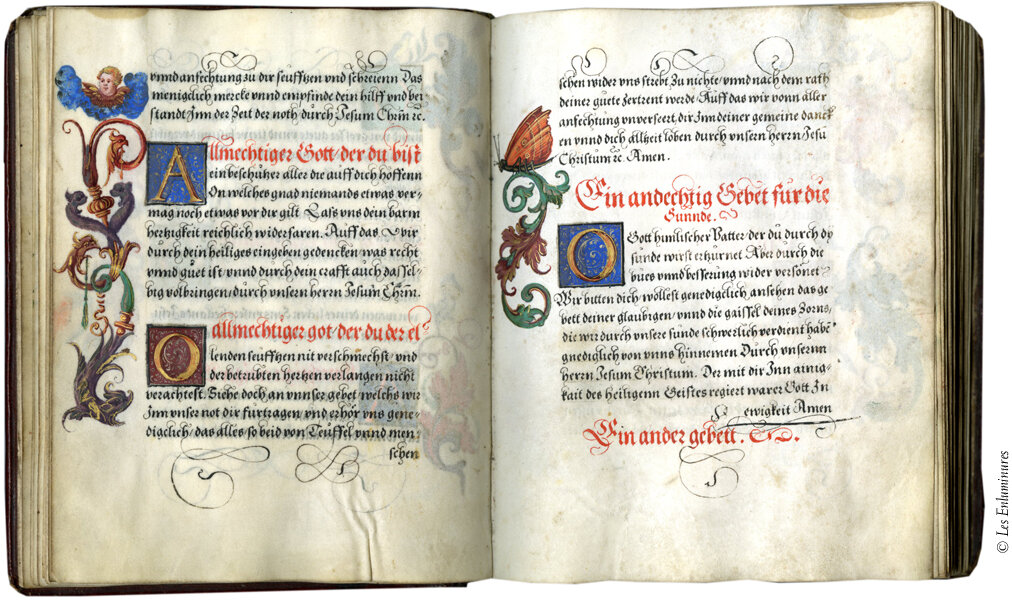 vnnd anfechtung zu dir seufftzen vnd schreienn Das
meniglich mercke vnnd empfinde dein hilff vnd bei-
standt Inn der Zeit der noth durch Jesum Chrm ꝛc.
Allmechtiger Gott / der du bist
ein beschützer alles die auff dich hoffenn
On welches gnad niemands etwas ver-
mag noch etwas vor dir gilt Lass vns dein barm
hertzigkeit reichlich widerfaren. Auff das Wir
durch dein heiliges eingeben gedencken was recht
vnnd guet ist vnnd durch dein crafft auch dasssel-
big volbringen / durch vnsern herrn Jesum Chrm.
O allmechtiger got / der du der el-
lenden seufftzen nit verschmechst / vnd
der betrubten hertzen verlangen nicht
verachtest. Siehe doch an vnnser gebet / welchs wir
Inn vnser not dir furtragen vnd erhör vns gene-
digclich / das alles so beid von Teuffel vnnd men-
schen
schen wider vns strebt Zu nichte / vnnd nach dem rath
deiner guete Zertrent werde Auff das wir vonn aller
anfechtung vnversert / dir Inn deiner gemeine danck
en vnnd dich allzeit loben durch vnsern herrn Jesu
Christum ꝛc Amen.
Ein andechtig Gebet für die
Sunnde.
O Gott himlischer Vatter / der du durch dy
sunde wirst erzurnet Aber durch die
bues vnnd besserung wider versonet
Wir bitten dich / wollest genediglich ansehen das ge
bett deiner glaubigen / vnnd die gaissel deines Zorns,
die wir durch vnsere sunde schwerlich verdient habe
gnediglich von vnns hinnemen Durch vnsernn
herrn Jesum Christum. Der mit dir Inn ainig-
kait des heiligenn Geistes regiert warer Gott Zu
ewigkeit Amen
Ein ander gebett. ꝛc.
© Les Enluminures